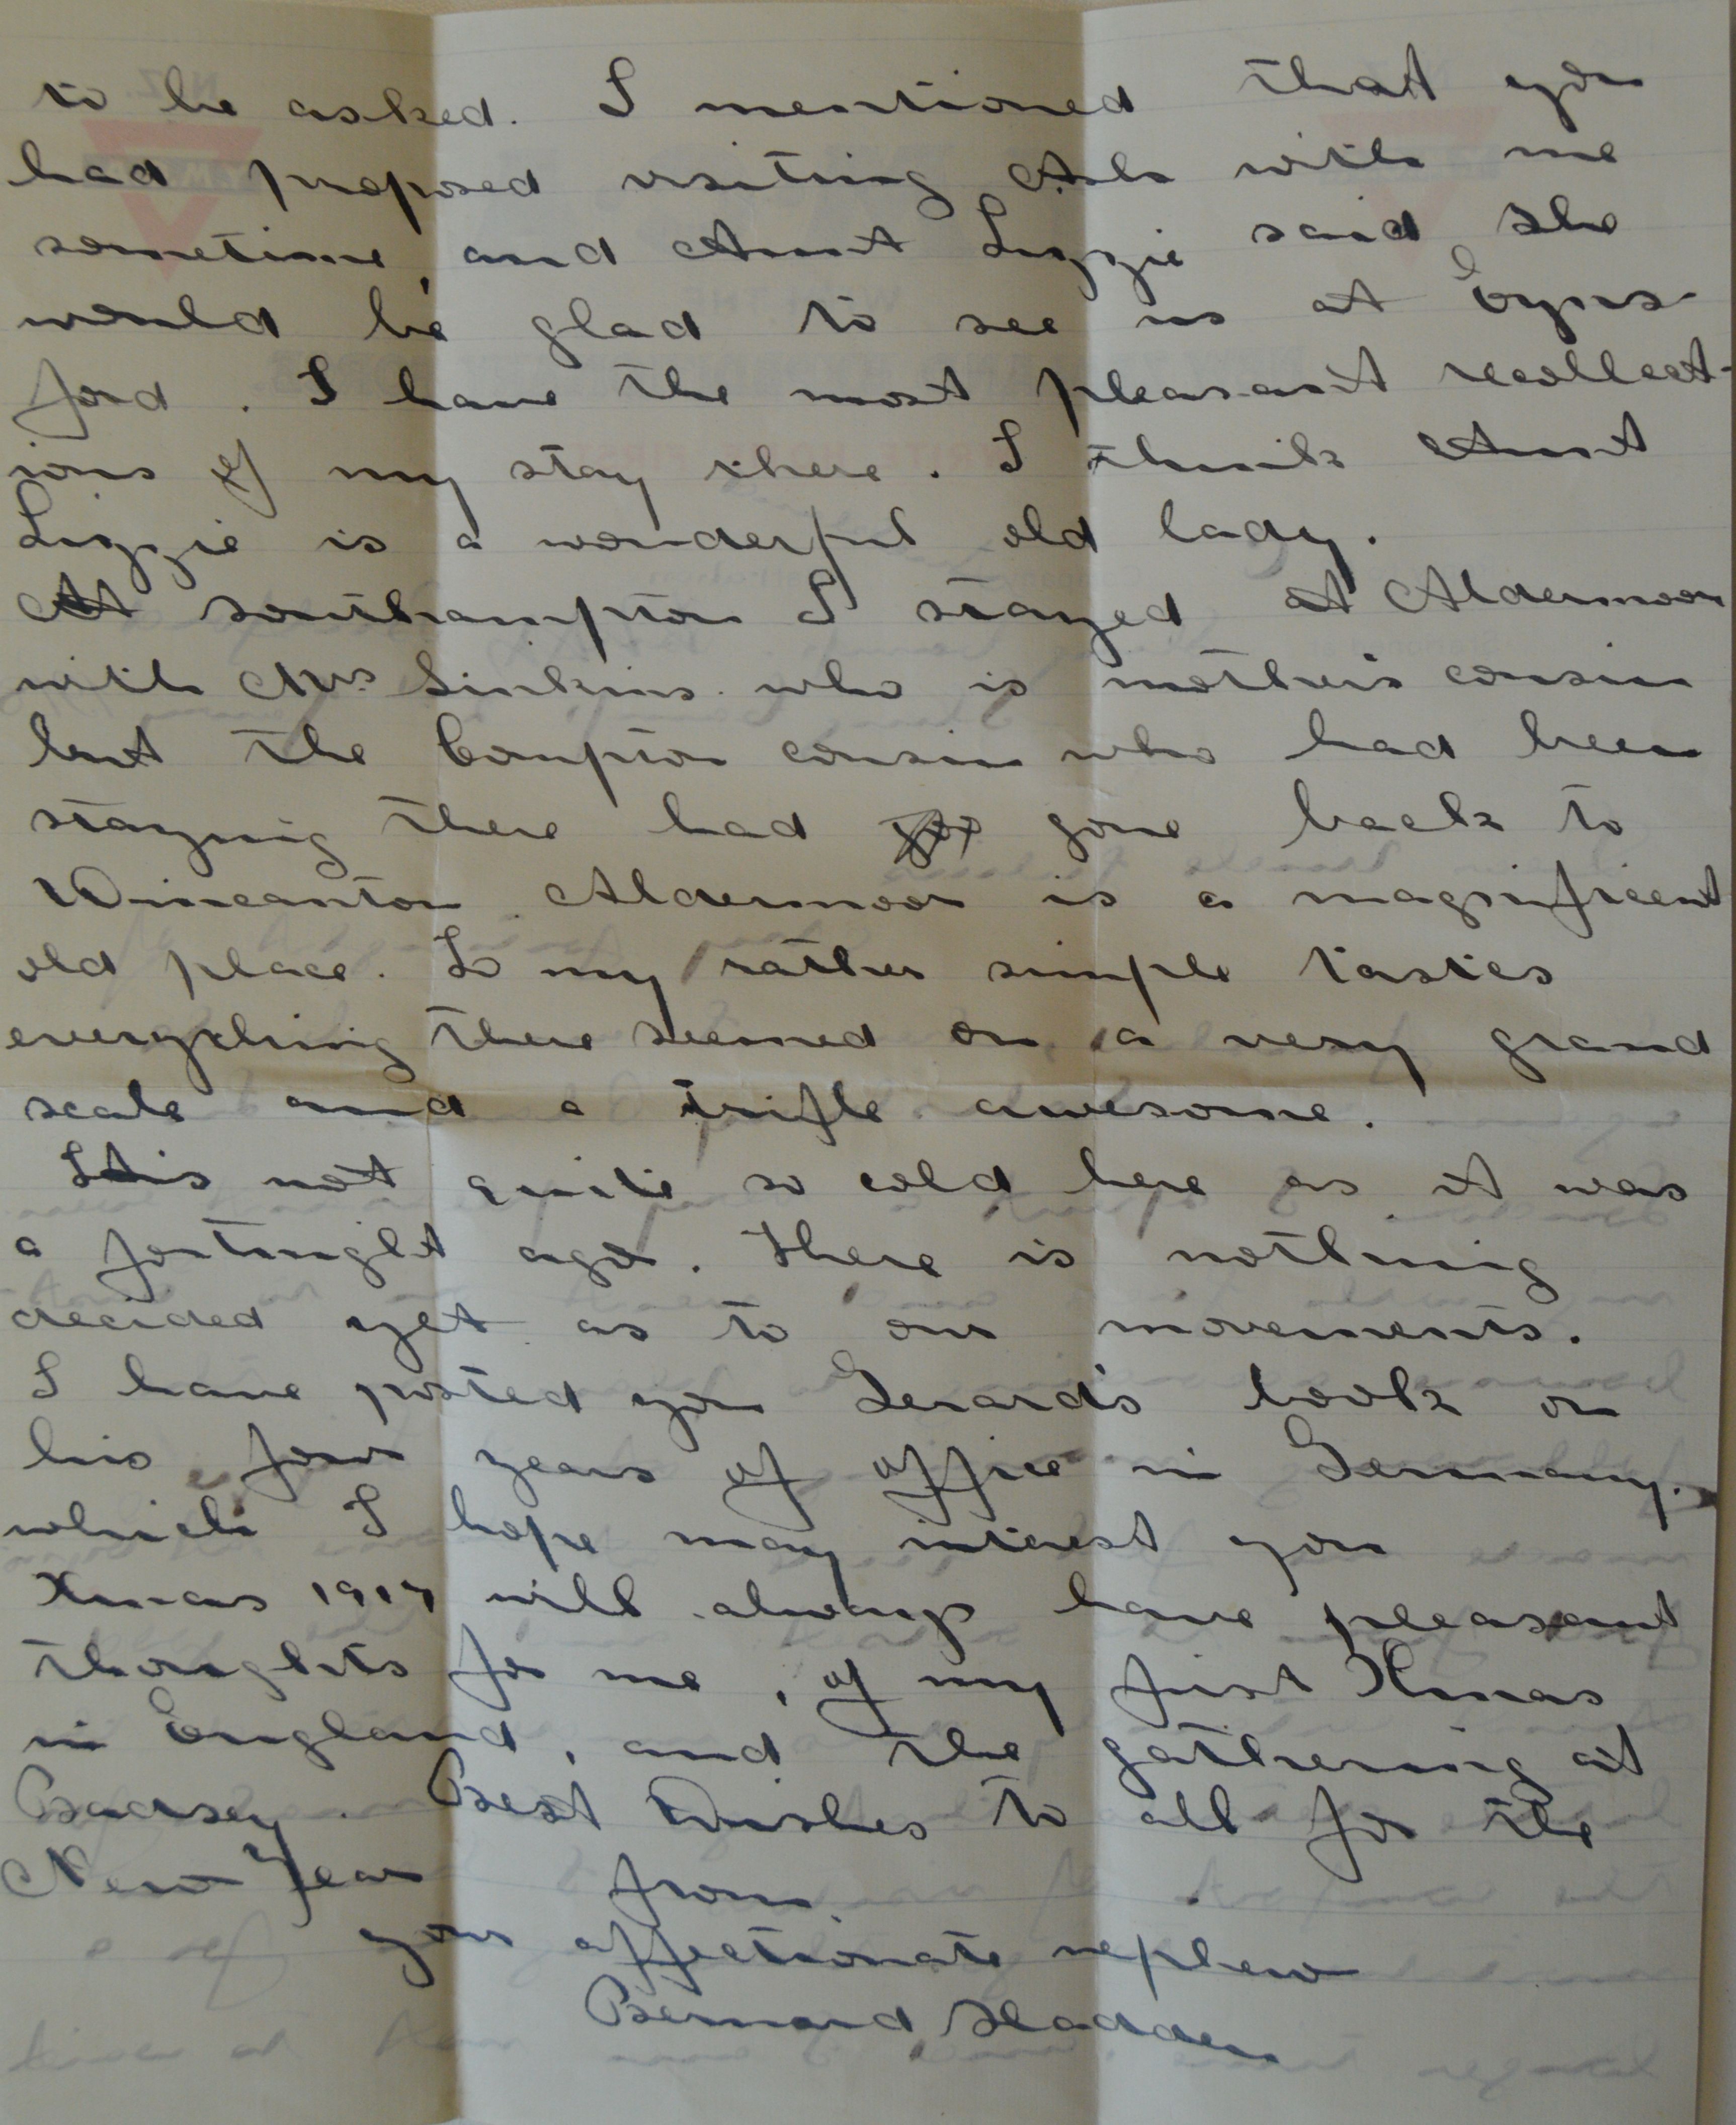 to be asked. I mentioned that you
had proposed visiting Ash with me
sometime, and Aunt Lizzie said she
would be glad to see us at Eyns-
ford. I have the most pleasant recollect-
ions of my stay there. I think Aunt
Lizzie is a wonderful old lady.
At Southampton I stayed at Aldermoor
with Mrs Sinkins who is mother's cousin
but the Compton cousin who had been
staying there had gone back to
Wincanton. Aldermoor is a magnificent
old place. To my rather simple tastes
everything there seemed on a very grand
scale and a trifle awesome.
It is not quite so cold here as it was
a fortnight ago. There is nothing
decided yet as to our movements.
I have posted you Gerard's book on
his four years of office in Germany.
which I hope may interest you
Xmas 1917 will always have pleasant
thoughts for me, of my first Xmas
in England, and the gathering at
Badsey. Best Wishes to all for the
New Year from
your affectionate nephew
Bernard Sladden